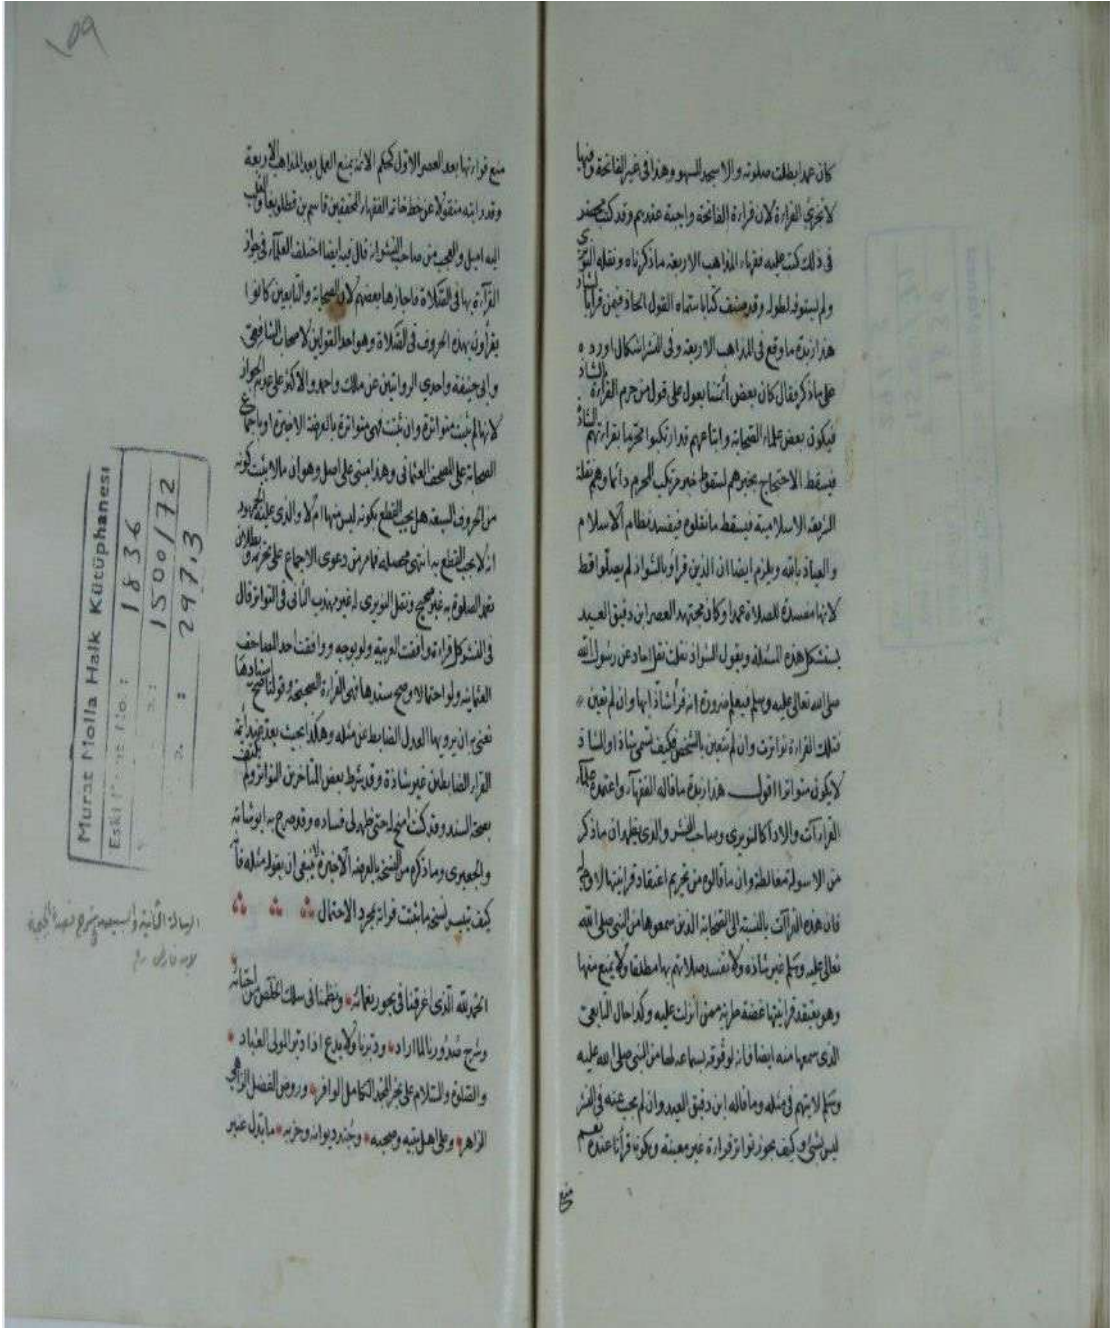 كان عمدا بطلت صلوته والا سجد للسهو وهذا في غير الفاتحة وفيها
لا تجزئ القراءة لان قراءة الفاتحة واجبة عندهم وقد كتب محضر
في ذلك كتب عليه فقهاء المذاهب الاربعة ما ذكرناه ونقله النويري
ولم يستوفه لطوله وقد صنف كتابا سماه القول الجاذ فيمن قرأ بالشاذ
هذا زبدة ما وقع في المذاهب الاربعة وفي النشر اشكال اورده
على ما ذكر فقال كان بعض أئمتنا يعول على قول من حرم القراءة بالشاذ
فيكون بعض علماء الصحابة واتباعهم قد ارتكبوا محرما بقراءتهم الشاذ
فيسقط الاحتجاج بخبرهم لسقوط خبر مرتكب المحرم دائما وهم نقلة
الشريعة الاسلامية فيسقط ما نقلوه فيفسد نظام الاسلام
والعياذ بالله ويلزم ايضا ان الذين قرأوا بالشواذ لم يصلوا قط
لانها مفسدة للصلاة عمدا وكان مجتهد العصر ابن دقيق العيد
يستشكل هذه المسئلة ويقول الشواذ نقلت نقل احاد عن رسول الله
صلى الله تعالى عليه وسلم فيعلم ضرورة انه قرأ شاذ بها وان لم تعين
فتلك القراءة تواترت وان لم تتعين بالشخص فكيف تسمى شاذا والشاذ
لا يكون متواترا اقول هذا زبدة ما قاله الفقهاء واعتمده علماء
القرا آت والاداء كالنويري وصاحب النشر والذي يظهر ان ما ذكر
من الاسولة مغالطة وان ما قالوه من تحريم اعتقاد قرانيتها
فان هذه القرا آت بالنسبة الى الصحابة الذين سمعوها من النبي صلى الله
تعالى عليه وسلم غير شاذه ولا تفسد صلاتهم بها مطلقا ولا يمنع منها
وهو يعتقد قرانيتها غضة طرية ممن انزلت عليه وكذا حال التابعي
الذي سمعها منه ايضا فانه لوثوقه بسماعه لها من النبي صلى الله عليه
وسلم لا يتهم في مثله وما قاله ابن دقيق العيد وان لم يجب عنه في النشر
ليس بشئ وكيف يجوز تواتر قراءة غير معينة ويكونه قرأنا عنده نعم
منع
منع قراءتها بعد العصر الاول كحكم الائمة بمنع العمل بعد المذاهب الاربعة
وقد رايته منقولا عن خط خاتمة الفقهاء المحققين قاسم بن قطلوبغا والقلب
اليه اميل والعجب من صاحب النشر انه قال فيه ايضا اختلف العلماء في جواز
القرآءة بها في الصلاة فاجازها بعضهم لان الصحابة والتابعين كانوا
يقرأون بهذه الحروف في الصلاة وهو احد القولين لاصحاب الشافعي
وابي حنيفة واحدى الروايتين عن مالك واحمد والاكثر على عدم الجواز
لانها لم تثبت متواترة وان ثبتت فهي متواترة بالعرضة الاخيرة او باجماع
الصحابة على المصحف العثماني وهذا مبني على اصل وهو ان ما لا يثبت كونه
من الحروف السبعة هل يجب القطع بكونه ليس منها ام لا والذي عليه الجمهور
انه لا يجب القطع به انتهى محصله فما مر من دعوى الاجماع على تحريمه وبطلان
الصلوة به غير صحيح ونقل النويري له غير مهذب الثاني في التواتر قال
في النشر كل قراءة وافقت العربية ولو بوجه ووافقت احد المصاحف
العثمانية ولو احتمالا وصح سندها فهي القراءة الصحيحة وقولنا صح اسنادها
نعني به ان يرويها العدل الضابط عن مثله وهكذا بحيث يعد عند ائمة
القراء الضابطين غير شاذة وقد شرط بعض المتاخرين التواتر ولم يكتف
بصحة السند وقد كنت اجنح له حتى ظهر لي فساده وقد صرح به ابو شامة
والجعبري وما ذكره من النسخ بالعرضة الاخيرة لا ينبغي ان يقوله مثله فانه
كيف يتيسر نسخ ما ثبتت قرانه بمجرد الاحتمال
الحمد لله الذي اغرقنا في بحور نعمائه ونظمنا في سلك الخلص من احبائه
وشرح صدورنا لما اراد ولا بدع اذا المولى العباد
والصلوة والسلام على بحر المجد الكامل الوافر وروض الفضل الزاهي
الزاهر وعلى اهل بيته وصحبه وجند ديوانه وحزبه ما بدل عنبر
الرسالة الثانية والسبعون شرح
Murat Molla Halk Kütüphanesi
Eski No.: 1836
1500/72
297.3